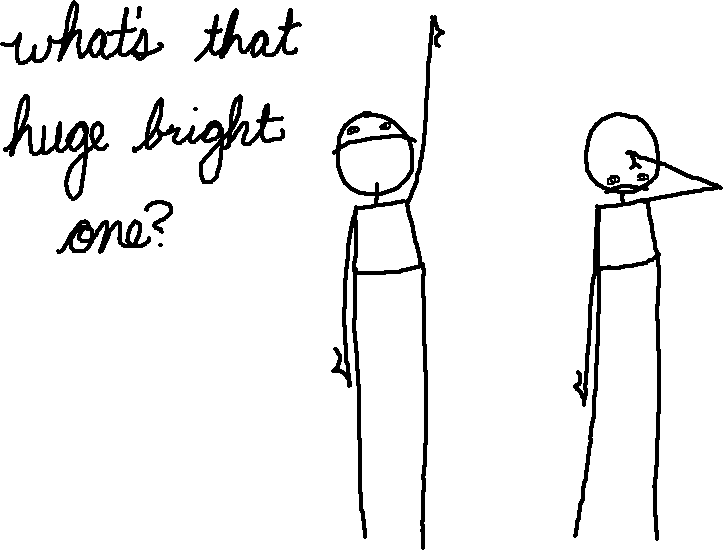 what's that
huge bright
one?